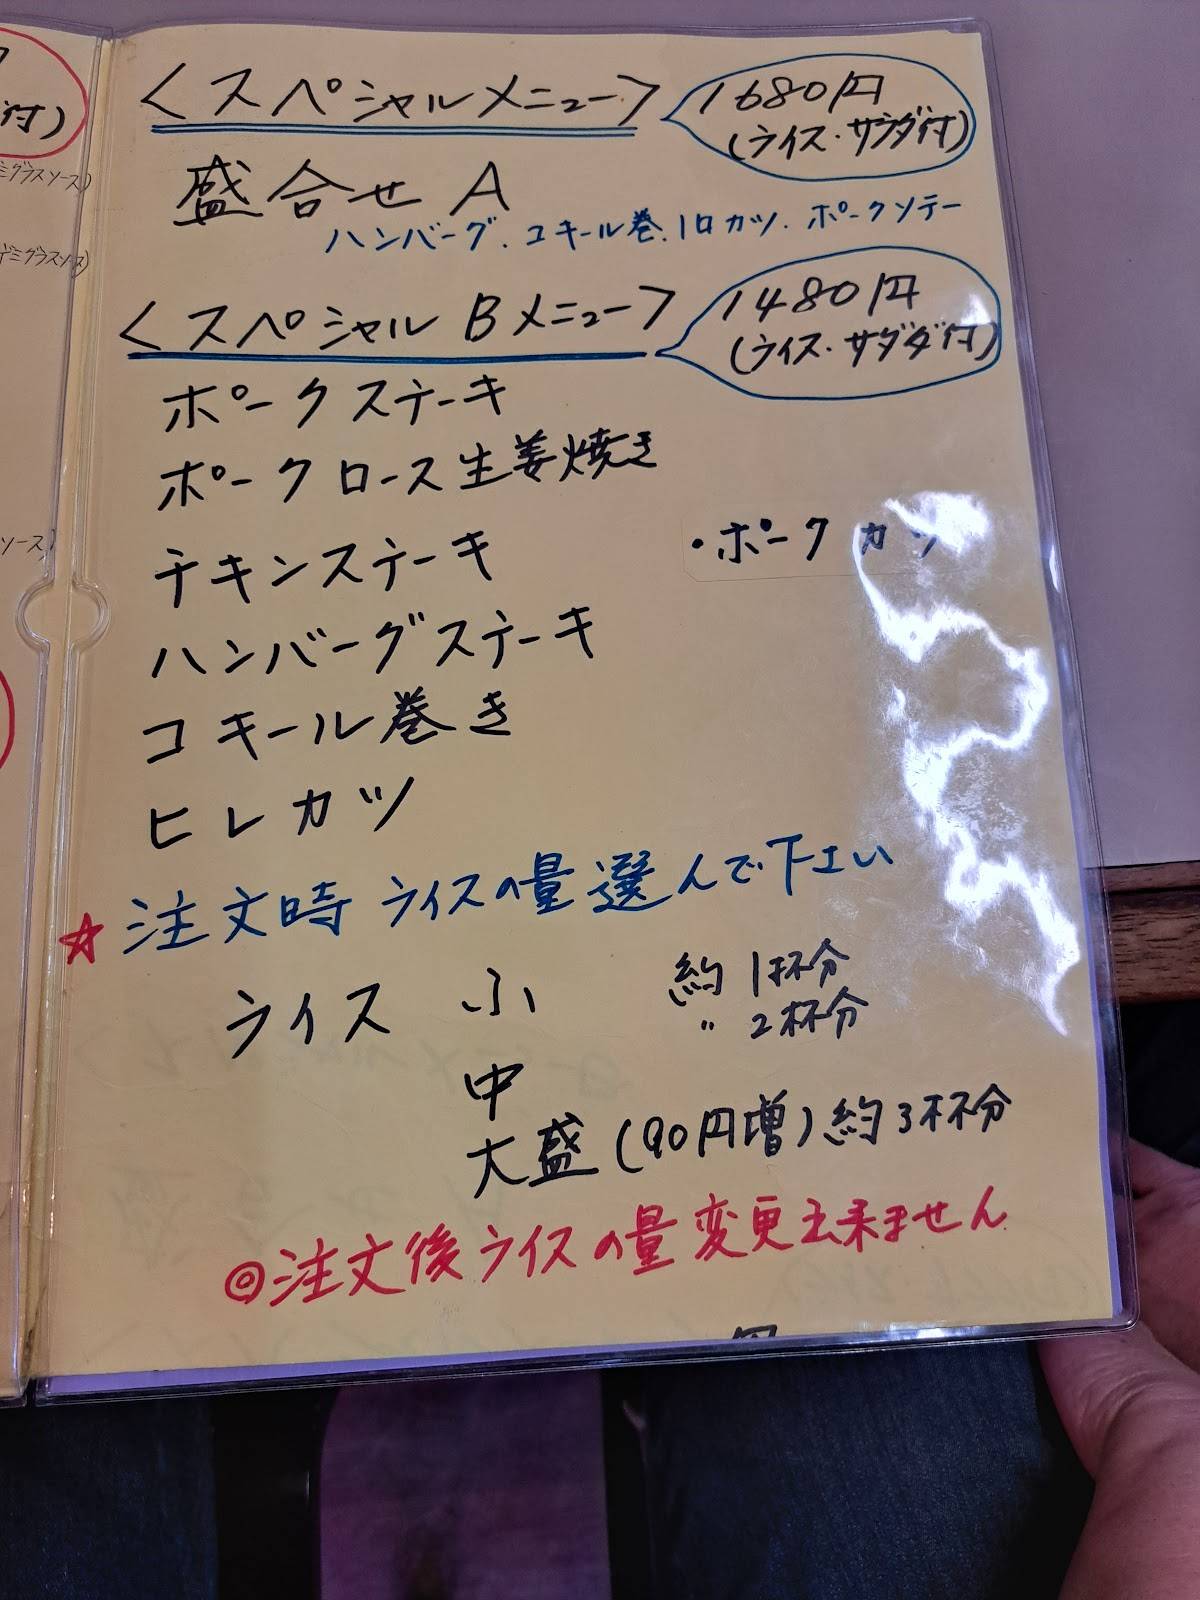 付)
ミグラスソース)
デミグラスソース)
ソース)
<スペシャルメニュー>
1680円
(ライス・サラダ付)
盛合せ A
ハンバーグ.コキール巻.1口カツ.ポークソテー
<スペシャル Bメニュー>
1480円
(ライス・サダダ付)
ポークステーキ
ポークロース生姜焼き
チキンステーキ
・ポークカツ
ハンバーグステーキ
コキール巻き
ヒレカツ
☆注文時ライスの量選んで下さい
ライス 小 約1杯分
中 〃2杯分
大盛(90円増)約3杯分
◎注文後ライスの量変更出来ません